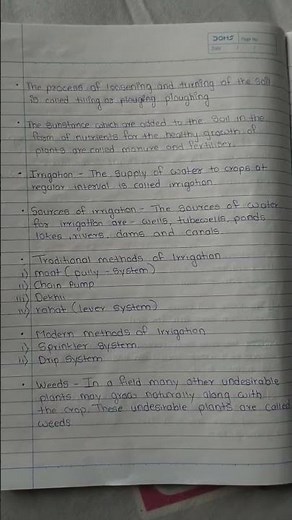 DOMS
Page No.
Date
• The process of loosening and turning of the soil
is called tilling or plouging ploughing
• The Sunstance which are added to the soil in the
form of nutrients for the healthy growth of
plants are called manure and fertiliser.
• Irrigation - The supply of water to crops at
regular interval is called irrigation
• Sources of irrigation - The sources of water
for irrigation are - wells, tubewells, ponds,
lakes, rivers, dams and canals
• Traditional methods of Irrigation
i) moat (pully - system)
ii) Chain Pump
iii) Dekhli
iv) rahat (lever system)
• Modern methods of Irrigation
i) Sprinkler System
ii) Drip System
• Weeds - In a field many other undesirable
plants may grow naturally along with
the crop. These undesirable plants are called
weeds